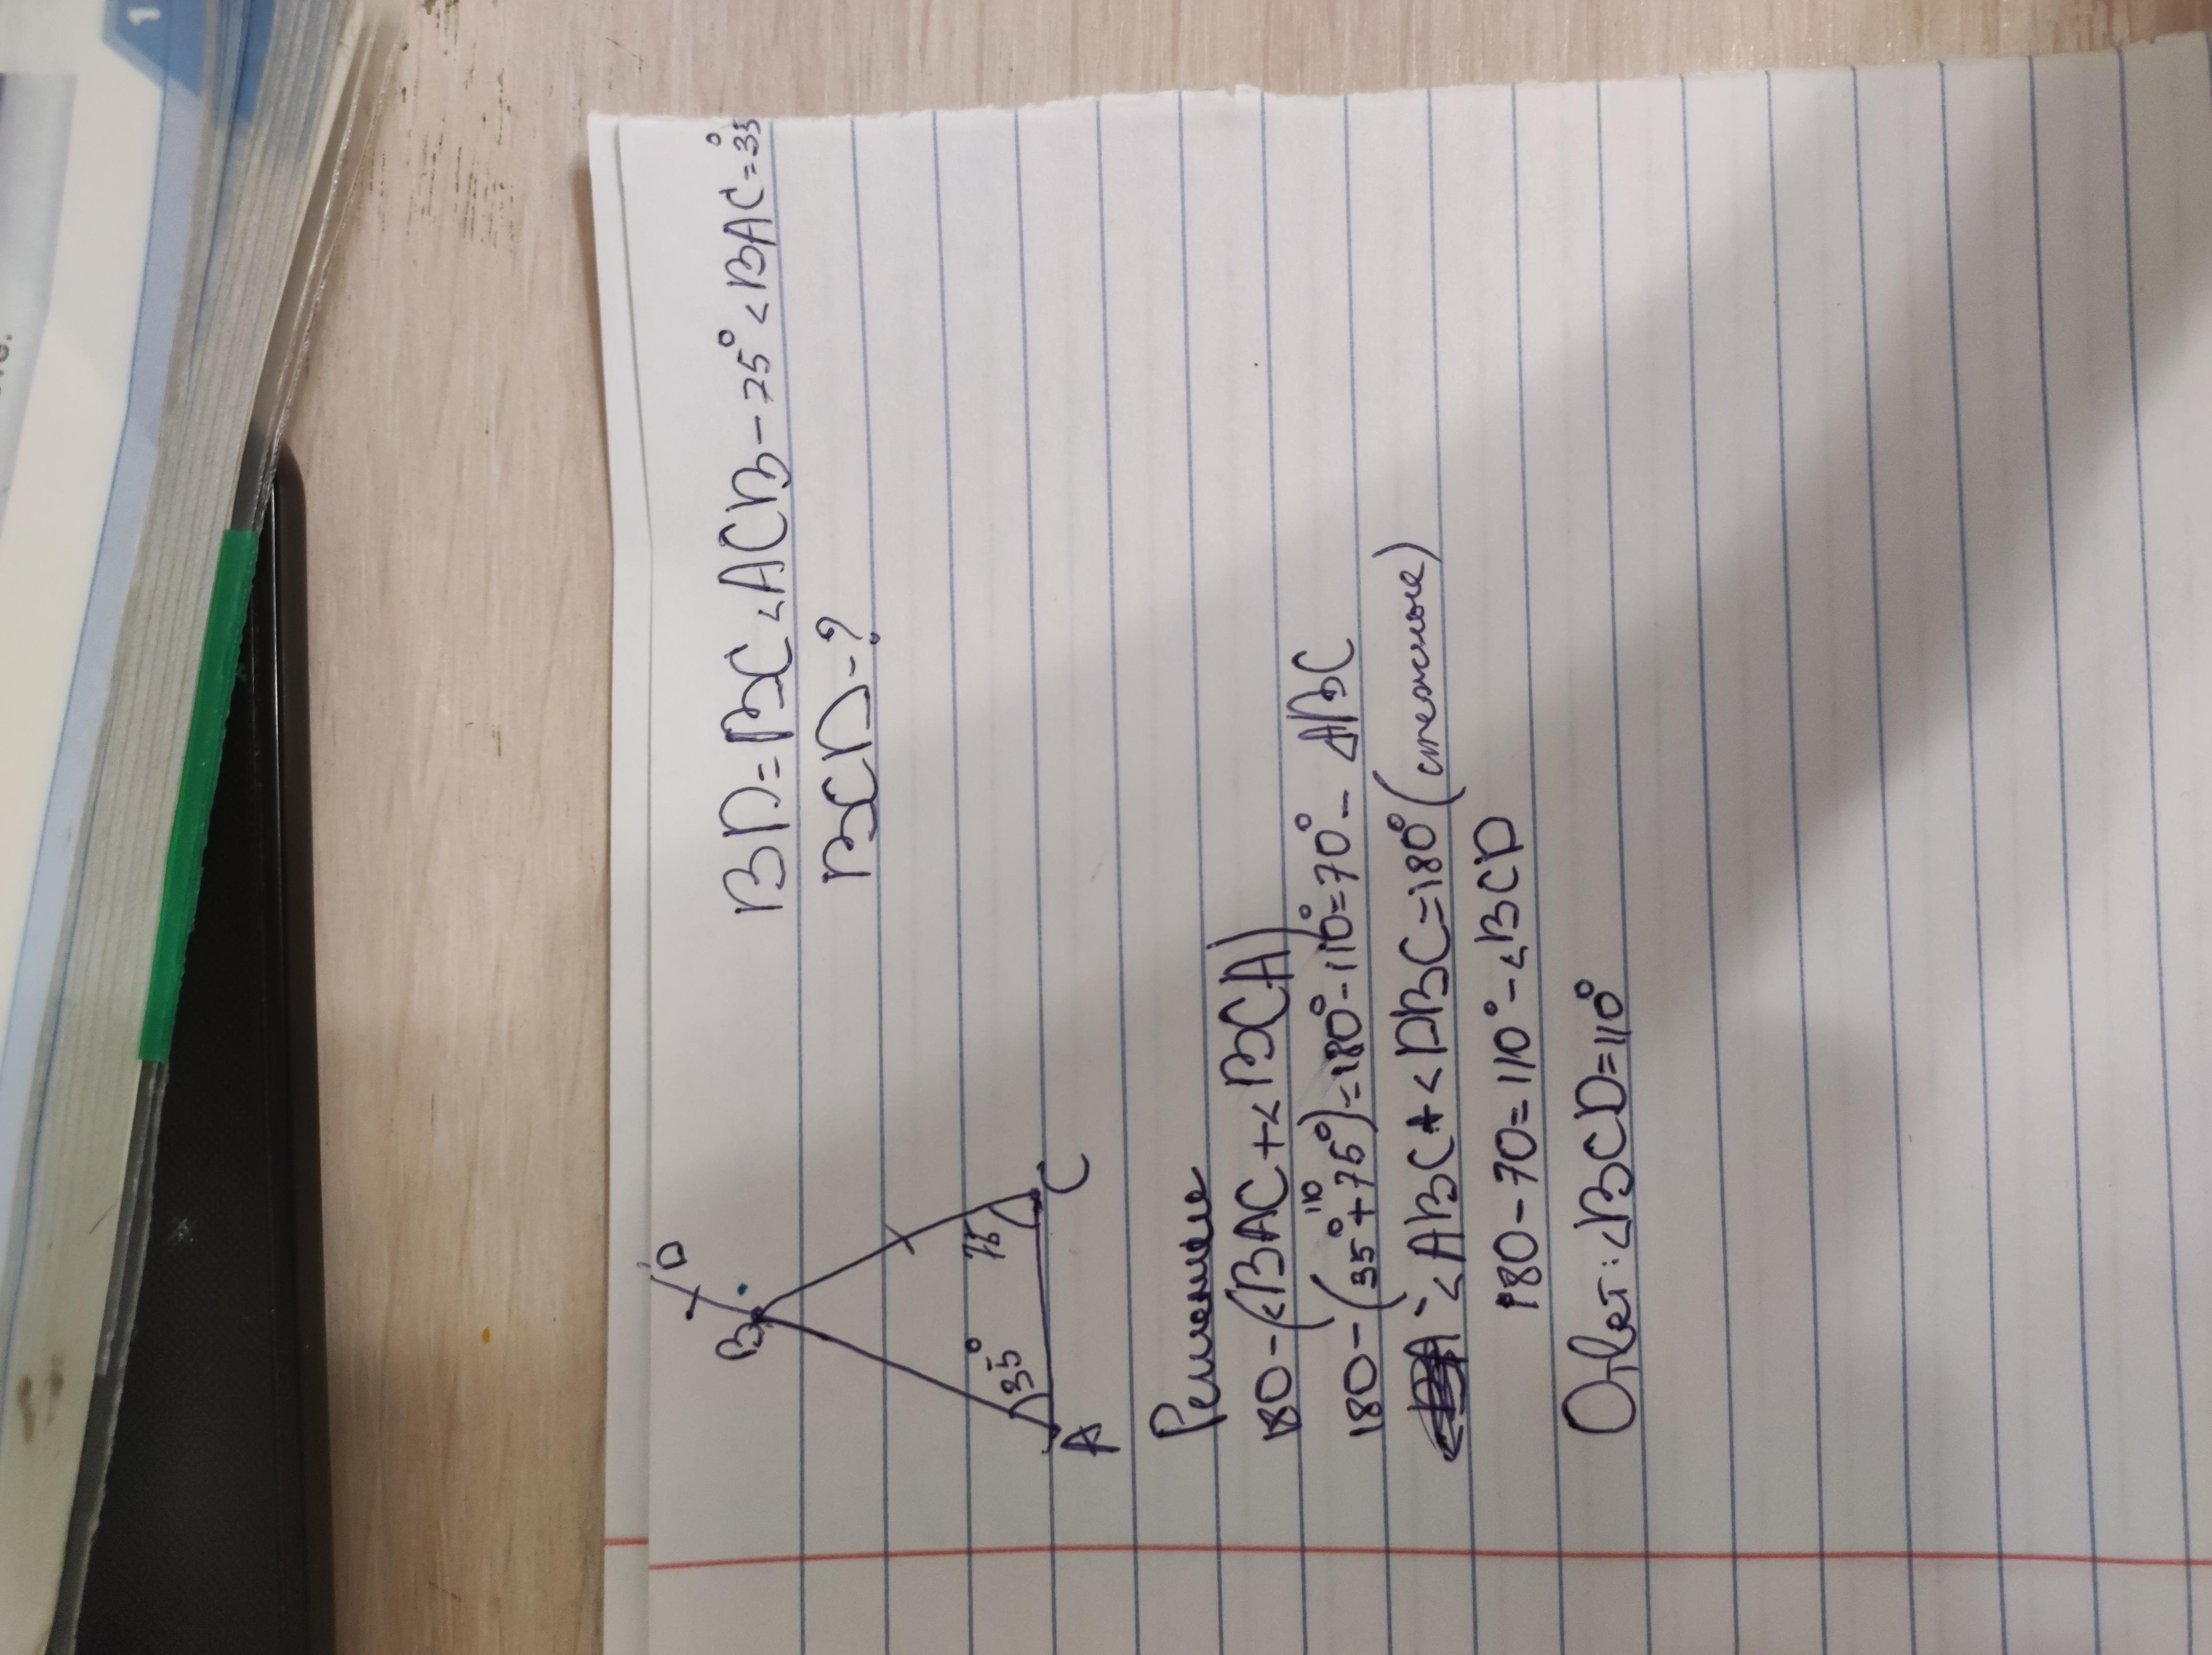 BD=BC <ACB-75° <BAC=35°
BCD-?
D
B
35°
75
A
C
Решение
180-(<BAC+<BCA)
110
180-(35°+75°)=180°-110°=70°- ABC
<ABC+<DBC=180° (смежные)
180-70=110°-<BCD
Ответ: <BCD=110°
1